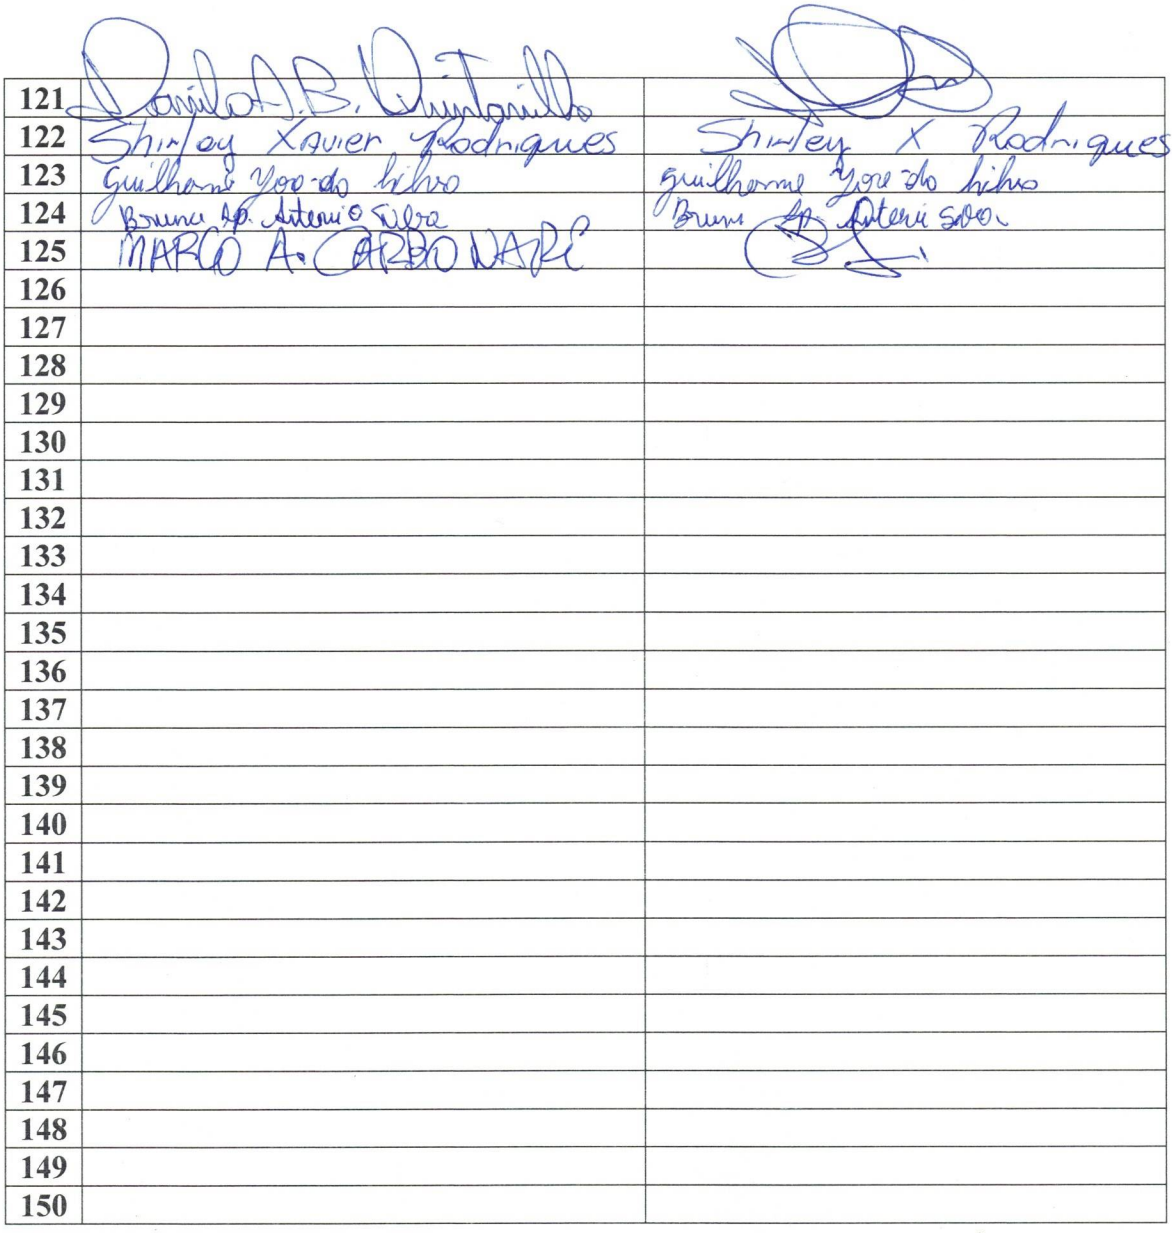 121 Danilo A. B. Quintanilha
122 Shirley Xavier Rodrigues Shirley X Rodrigues
123 Guilherme do Guilherme do
124 Bruna Ap. Antonio Silva Bruna Ap. Antonio Silva
125 MARCO A. CARBONARI
126
127
128
129
130
131
132
133
134
135
136
137
138
139
140
141
142
143
144
145
146
147
148
149
150